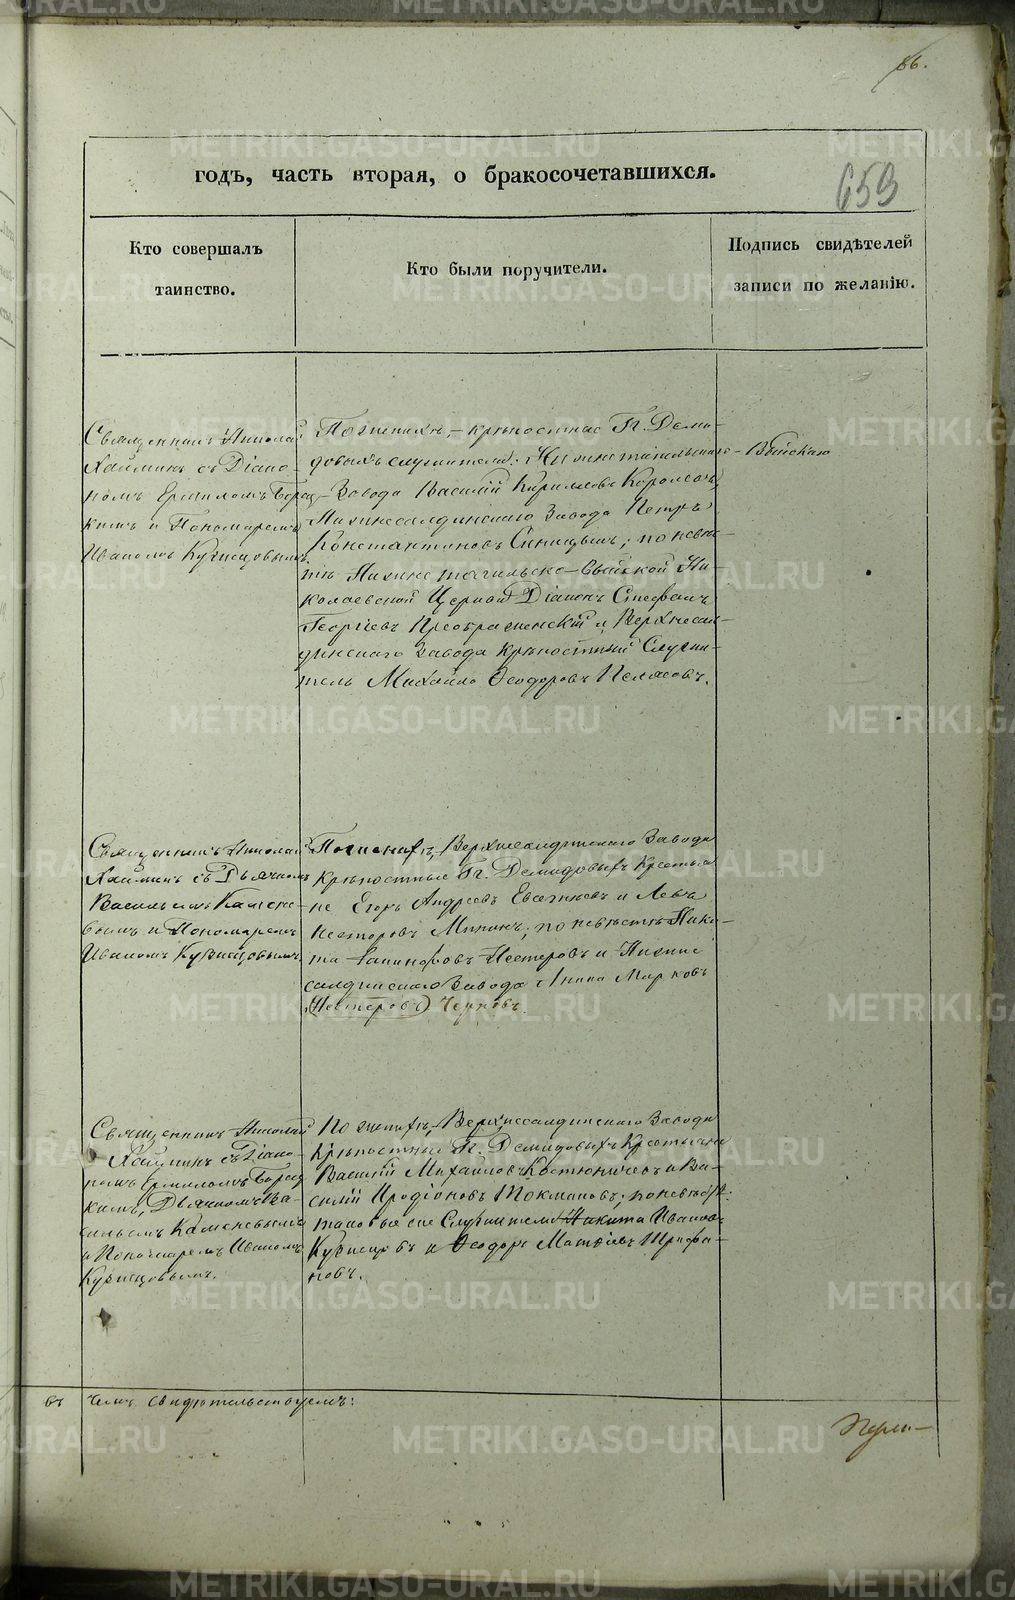 66.
годъ, часть вторая, о бракосочетавшихся.
659
Кто совершалъ
таинство.
Кто были поручители.
Подпись свидѣтелей
записи по желанію.
Священникъ Николай
Хаминъ съ Діако-
номъ Ермиломъ
и Пономаремъ
Иваномъ Кузнецовымъ.
По женихѣ, – крѣпостные Г. Деми-
довыхъ служители: Нижнетагильскаго –
Завода Василій Кириловъ Королевъ,
Нижнесалдинскаго Завода Петръ
Константиновъ Синицынъ; по невѣс-
тѣ Нижнетагильско-Выйской Ни-
колаевской Церкви Діаконъ Стефанъ
Георгіевъ Преображенскій и Верхнесал-
динскаго Завода крѣпостный Служи-
тель Михайло Ѳеодоровъ
Священникъ Николай
Хаминъ съ Дьячкомъ
Васильемъ Камене-
вымъ и Пономаремъ
Иваномъ Кузнецовымъ.
По женихѣ, Верхнесалдинскаго Завода
крѣпостные Г. Демидовыхъ Крестья-
не Егоръ Андреевъ Евсегнѣевъ и Левъ
Несторовъ; по невѣстѣ Ники-
та Нестеровъ и Нижне
салдинскаго Завода Марковъ
(Нестеровъ)
Священникъ Николай
Хаминъ съ Діако-
номъ Ермиломъ
Дьячкомъ Ва-
сильемъ Каменевымъ
и Пономаремъ Иваномъ
Кузнецовымъ.
По женихѣ, Верхнесалдинскаго Завода
Крѣпостные Г. Демидовыхъ Крестьяне
Василій Михайловъ и Ва-
силій Иродіоновъ Токмаковъ; по невѣстѣ:
таковые же Служители Никита Ивановъ
Кузнецовъ и Ѳеодоръ Матвѣевъ Трифа-
новъ.
въ чемъ свидѣтельствуемъ: